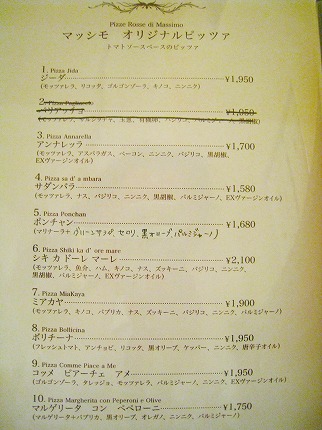 Pizze Rosse di Massimo
マッシモ オリジナルピッツァ
トマトソースベースのピッツァ
1. Pizza Jida
ジーダ ¥1,950
(モッツァレラ、リコッタ、ゴルゴンゾーラ、キノコ、ニンニク)
2. Pizza
¥1,950
3. Pizza Annarella
アンナレッラ ¥1,700
(モッツァレラ、アスパラガス、ベーコン、ニンニク、バジリコ、黒胡椒、
EXヴァージンオイル)
4. Pizza sa d' a mbara
サダンバラ ¥1,580
(モッツァレラ、ナス、バジリコ、ニンニク、黒胡椒、パルミジャーノ、EXヴァージンオイル)
5. Pizza Ponchan
ポンチャン ¥1,680
(マリナーラ+グリーンサラダ、セロリ、黒オリーブ、パルミジャーノ)
6. Pizza Shiki ka d' ore mare
シキ カ ドーレ マーレ ¥2,100
(モッツァレラ、魚介、ハム、キノコ、ナス、ズッキーニ、バジリコ、ニンニク、
黒胡椒、パルミジャーノ、EXヴァージンオイル)
7. Pizza MiaKaya
ミアカヤ ¥1,900
(モッツァレラ、キノコ、パプリカ、ナス、ズッキーニ、バジリコ、ニンニク、パルミジャーノ)
8. Pizza Bollicina
ボリチーナ ¥1,950
(フレッシュトマト、アンチョビ、リコッタ、黒オリーブ、ケッパー、ニンニク、唐辛子オイル)
9. Pizza Comme Piace a Me
コッメ ピアーチェ アメ ¥1,950
(ゴルゴンゾーラ、タレッジョ、モッツァレラ、パルミジャーノ、ニンニク、EXヴァージンオイル)
10. Pizza Margherita con Peperoni e Olive
マルゲリータ コン ペペローニ ¥1,750
(マルゲリータ+パプリカ、黒オリーブ、オレガノ、ニンニク、パルミジャーノ)